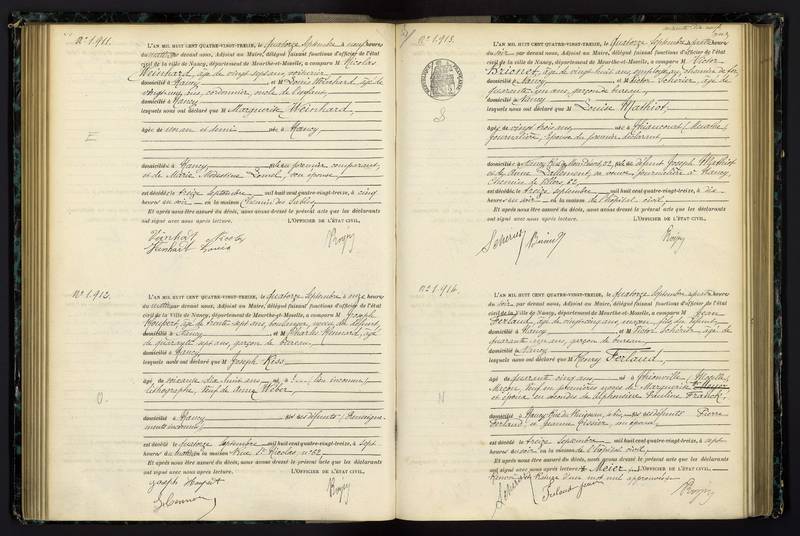 N° 1.911.
L'AN MIL HUIT CENT QUATRE-VINGT-TREIZE, le Quatorze Septembre à neuf heures
du matin par devant nous, Adjoint au Maire, délégué faisant fonctions d'officier de l'état
civil de la Ville de Nancy, département de Meurthe-et-Moselle, a comparu M Nicolas
Weinhard, âgé de vingt sept ans, voiturier
domicilié à Nancy et M Louis Weinhard, âgé de
vingt cinq ans, cordonnier, oncle de l'enfant,
domicilié à Nancy
lesquels nous ont déclaré que M Marguerite Weinhard,
âgée de un an et demi née à Nancy,
E
domiciliée à Nancy fille du premier comparant,
et de Marie Modestine Lomel, son épouse
est décédée le treize septembre mil huit cent quatre-vingt-treize, à cinq
heures du soir en la maison Chemin des Sables,
Et après nous être assuré du décès, nous avons dressé le présent acte que les déclarants
ont signé avec nous après lecture. L'OFFICIER DE L'ÉTAT CIVIL,
N° 1.912.
L'AN MIL HUIT CENT QUATRE-VINGT-TREIZE, le Quatorze Septembre à onze heures
du matin par devant nous, Adjoint au Maire, délégué faisant fonctions d'officier de l'état
civil de la Ville de Nancy, département de Meurthe-et-Moselle, a comparu M Joseph
Houpert, âgé de trente sept ans, boulanger, neveu du défunt
domicilié à Nancy et M Charles Hennard, âgé
de quarante sept ans, garçon de bureau,
domicilié à Nancy
lesquels nous ont déclaré que M Joseph Kiss
âgé de soixante dix huit ans né à (lieu inconnu)
lithographe, veuf de Anne Weber
O.
domicilié à Nancy fils des défunts (Renseigne-
ments inconnus)
est décédé le quatorze septembre mil huit cent quatre-vingt-treize, à sept
heures du matin en sa maison Rue St Nicolas, n° 62
Et après nous être assuré du décès, nous avons dressé le présent acte que les déclarants
ont signé avec nous après lecture. L'OFFICIER DE L'ÉTAT CIVIL,
N° 1.913.
L'AN MIL HUIT CENT QUATRE-VINGT-TREIZE, le Quatorze Septembre à heures
du soir, par devant nous, Adjoint au Maire, délégué faisant fonctions d'officier de l'état
civil de la Ville de Nancy, département de Meurthe-et-Moselle, a comparu M Victor
Brionet, âgé de vingt huit ans, employé au chemin de fer,
domicilié à Nancy et M Victor Schérier, âgé de
quarante ans, garçon de bureau,
domicilié à Nancy
lesquels nous ont déclaré que M Louise Mathiot
âgée de vingt trois ans née à Thiancourt (Meurthe)
journalière, épouse du premier déclarant,
S
domiciliée à Nancy 32, fille de défunt Joseph Mathiot
et de Anne Lallement, sa veuve journalière à Nancy,
Chemin de 52
est décédée le treize septembre mil huit cent quatre-vingt-treize, à dix
heures du soir en la maison de l'hôpital civil,
Et après nous être assuré du décès, nous avons dressé le présent acte que les déclarants
ont signé avec nous après lecture. L'OFFICIER DE L'ÉTAT CIVIL,
N° 1.914.
L'AN MIL HUIT CENT QUATRE-VINGT-TREIZE, le Quatorze Septembre à heures
du soir, par devant nous, Adjoint au Maire, délégué faisant fonctions d'officier de l'état
civil de la Ville de Nancy, département de Meurthe-et-Moselle, a comparu M Jean
Ferland, âgé de vingt cinq ans, maçon, fils du défunt,
domicilié à Nancy et M Victor Schérier, âgé de
quarante ans, garçon de bureau,
domicilié à Nancy
lesquels nous ont déclaré que M Henry Ferland,
âgé de quarante cinq ans né à Thionville (Moselle)
Maçon, veuf en premières noces de Marguerite Meyer
et époux en secondes de Alphonsine Pauline Franck.
N
domicilié à Nancy fils des défunts Pierre
Ferland et Jeanne son épouse
est décédé le treize septembre mil huit cent quatre-vingt-treize, à sept
heures du soir en la maison de l'hôpital civil,
Et après nous être assuré du décès, nous avons dressé le présent acte que les déclarants
ont signé avec nous après lecture. Meier L'OFFICIER DE L'ÉTAT CIVIL,